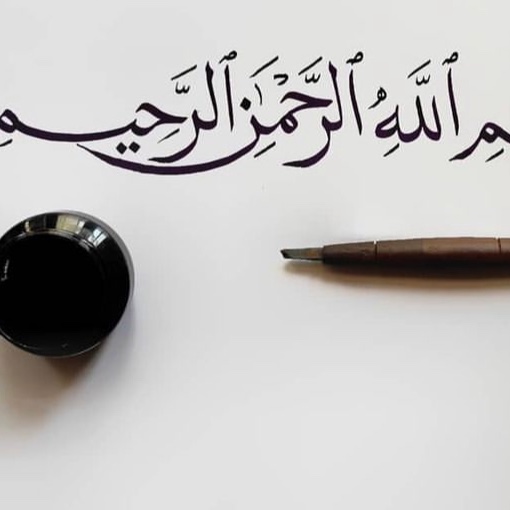 ـمِ ٱللَّهِ ٱلرَّحْمَـٰنِ ٱلرَّحِيمِ